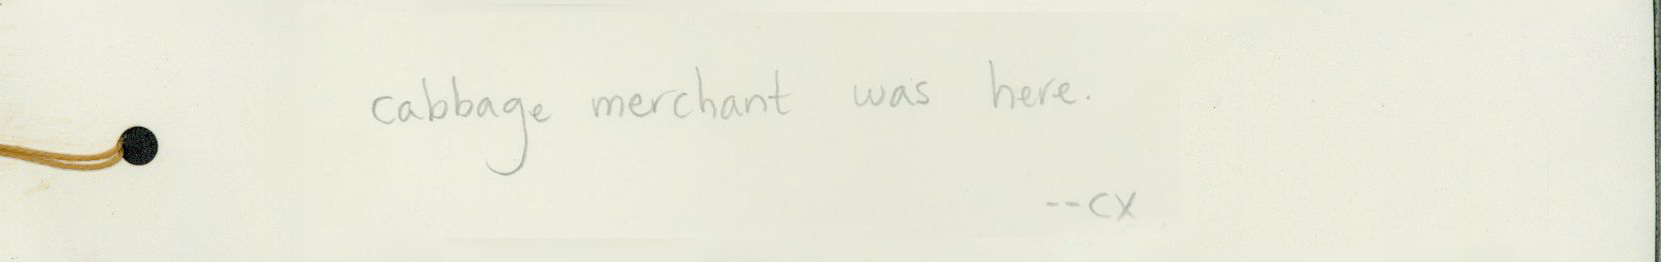 cabbage merchant was here.
--CX